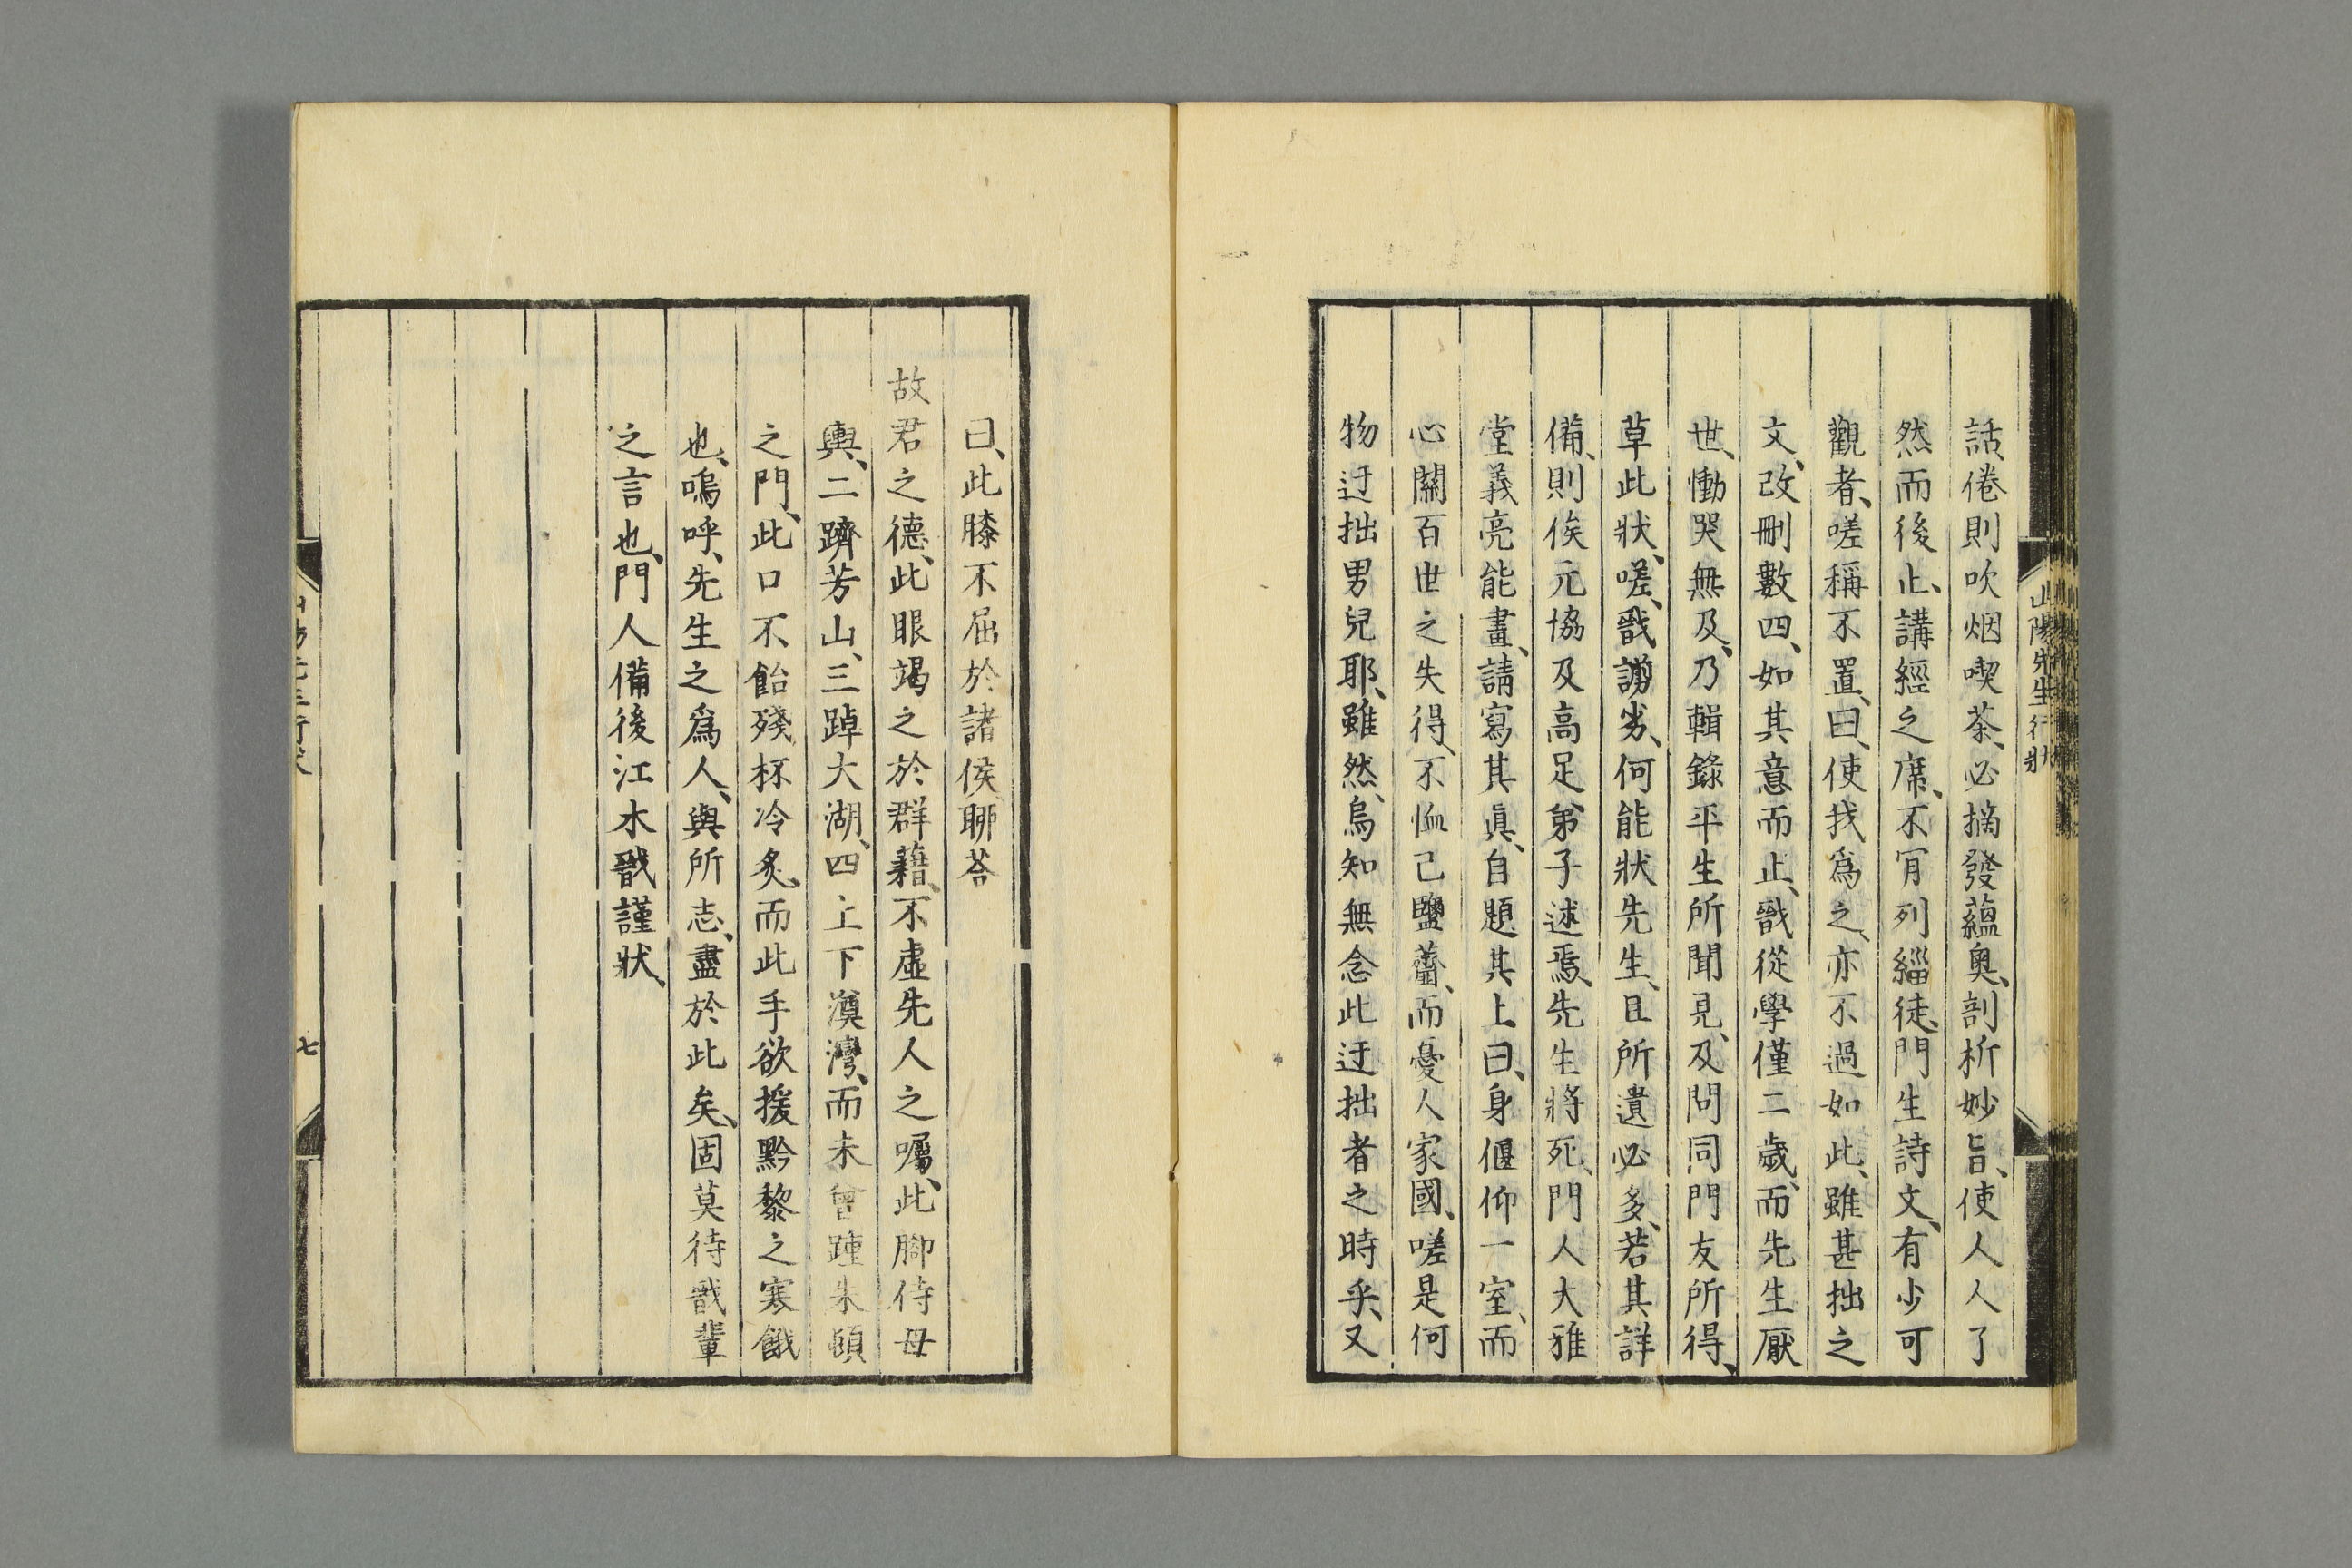 話、倦則吹烟喫茶、必摘發蘊奧、剖析妙旨、使人人了
然而後止、講經之席、不肎列緇徒、門生詩文、有少可
觀者、嗟稱不置、曰、使我爲之、亦不過如此、雖甚拙之
文、改刪數四、如其意而止、戩從學僅二歲、而先生厭
世、慟哭無及、乃輯錄平生所聞見、及問同門友所得、
草此狀、嗟、戩謭劣、何能狀先生、且所遺必多、若其詳
備、則俟元協及高足弟子述焉、先生將死、門人大雅
堂義亮能畫、請寫其眞、自題其上曰、身偃仰一室、而
心關百世之失得、不恤己鹽虀、而憂人家國、嗟是何
物迂拙男兒耶、雖然、烏知無念此迂拙者之時乎、又
山陽先生行狀
曰、此膝不屈於諸侯、聊荅
故君之德、此眼竭之於群藉、不虛先人之囑、此脚侍母
輿、二躋芳山、三踔大湖、四上下澱灣、而未曾踵朱頓
之門、此口不飴殘杯冷炙、而此手欲援黔黎之寒餓
也、嗚呼、先生之爲人、與所志、盡於此矣、固莫待戩輩
之言也、門人備後江木戩謹狀、
七